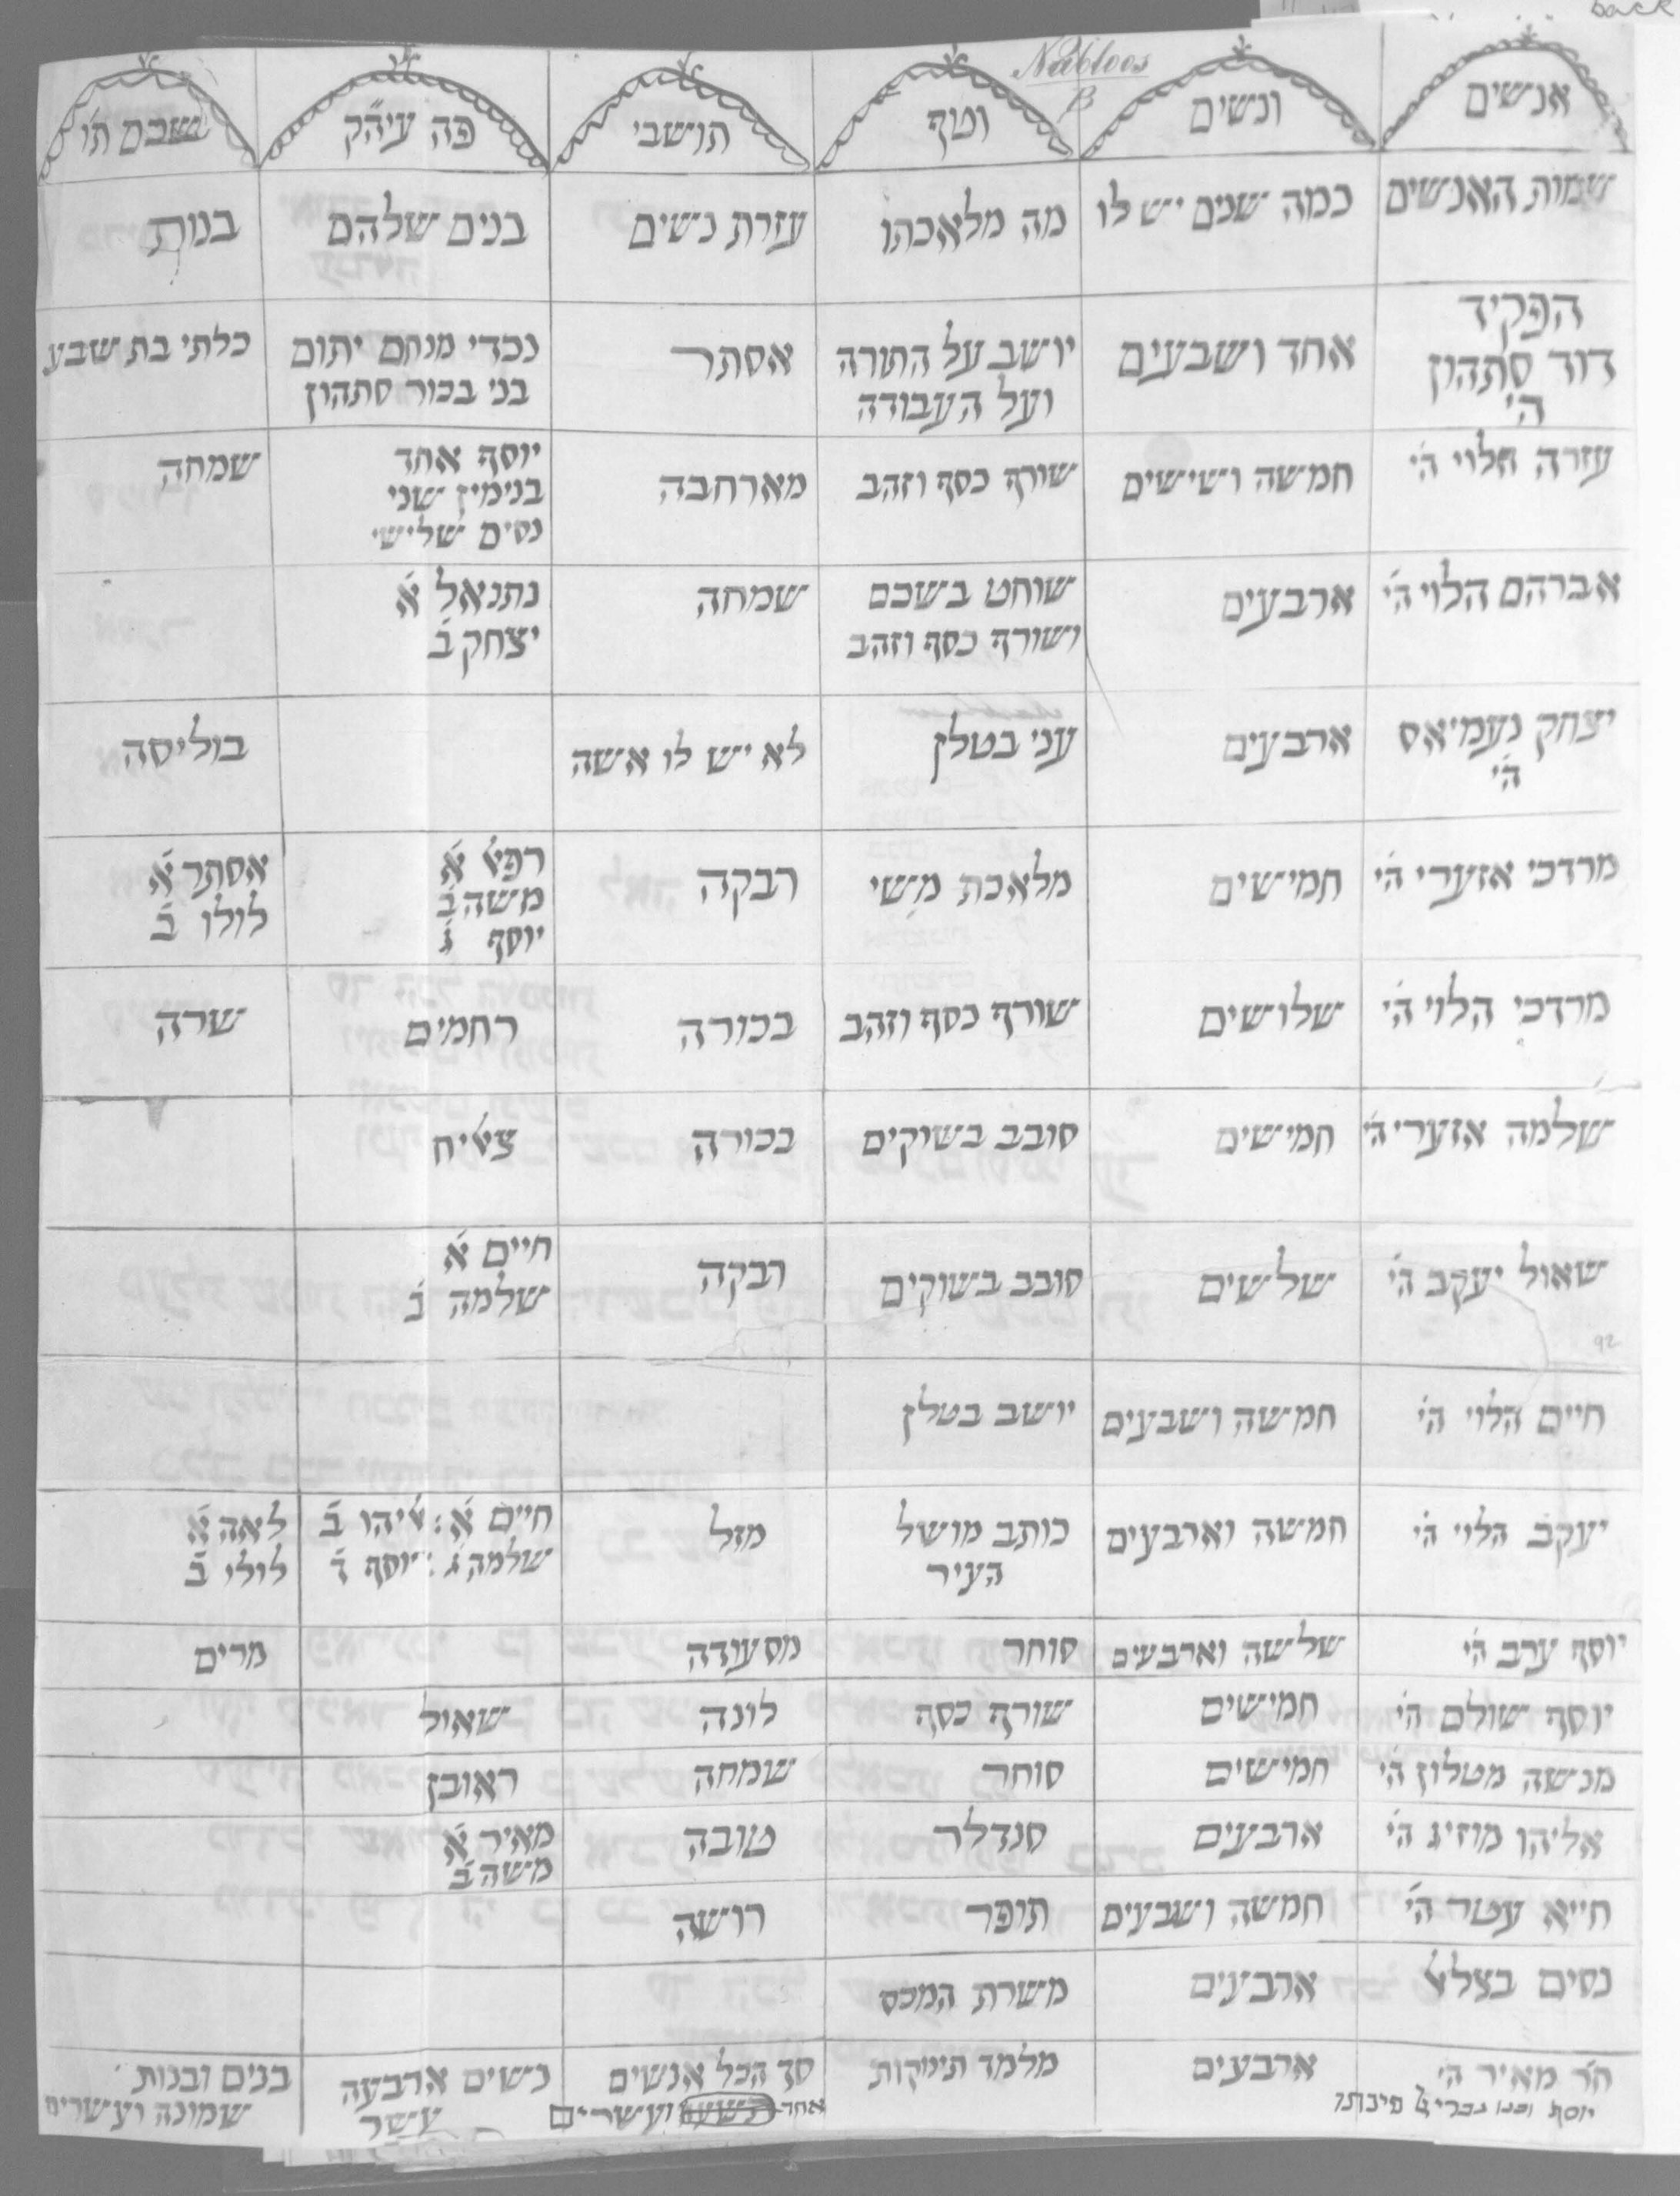 back
Nabloos
β
אנשים ונשים וטף תושבי פה עיה״ק שכם ת״ו
שמות האנשים כמה שנים יש לו מה מלאכתו עזרת נשים בנים שלהם בנות
הפקיד
דוד סתהון אחד ושבעים יושב על התורה אסתר נכדי מנחם יתום כלתי בת שבע
ה״י ועל העבודה בני בכור סתהון
עזרה הלוי ה״י חמשה ושישים שורף כסף וזהב מארחבה יוסף אחד שמחה
בנימין שני
נסים שלישי
אברהם הלוי ה״י ארבעים שוחט בשכם שמחה נתנאל א׳
ושורף כסף וזהב יצחק ב׳
יצחק נעמיאס ארבעים עני בטלן לא יש לו אשה בוליסה
ה״י
מרדכי אזערי ה״י חמישים מלאכת משי רבקה רפאל א׳ אסתר א׳
משה ב׳ לולו ב׳
יוסף ג׳
מרדכי הלוי ה״י שלושים שורף כסף וזהב בכורה רחמים שרה
שלמה אזערי ה״י חמישים סובב בשוקים בכורה צאליח
שאול יעקב ה״י שלשים סובב בשוקים רבקה חיים א׳
שלמה ב׳
92
חיים הלוי ה״י חמשה ושבעים יושב בטלן
יעקב הלוי ה״י חמשה וארבעים כותב מושל מזל חיים א׳: אליהו ב׳ לאה א׳
העיר שלמה ג׳: יוסף ד׳ לולו ב׳
יוסף ערב ה״י שלשה וארבעים סוחר מסעודה מרים
יוסף שולם ה״י חמישים שורף כסף לונה שאול
מנשה מטלון ה״י חמישים סוחר שמחה ראובן
אליהו מוזיג ה״י ארבעים סנדלר טובה מאיר א׳
משה ב׳
חייא עטר ה״י חמשה ושבעים תופר רושה
נסים בצלאל ארבעים משרת המכס
ח״ר מאיר ה״י ארבעים מלמד תינוקות סך הכל אנשים נשים ארבעה בנים ובנות
יוסף ובנו גבריאל אחד ועשרים עשר שמונה ועשרים